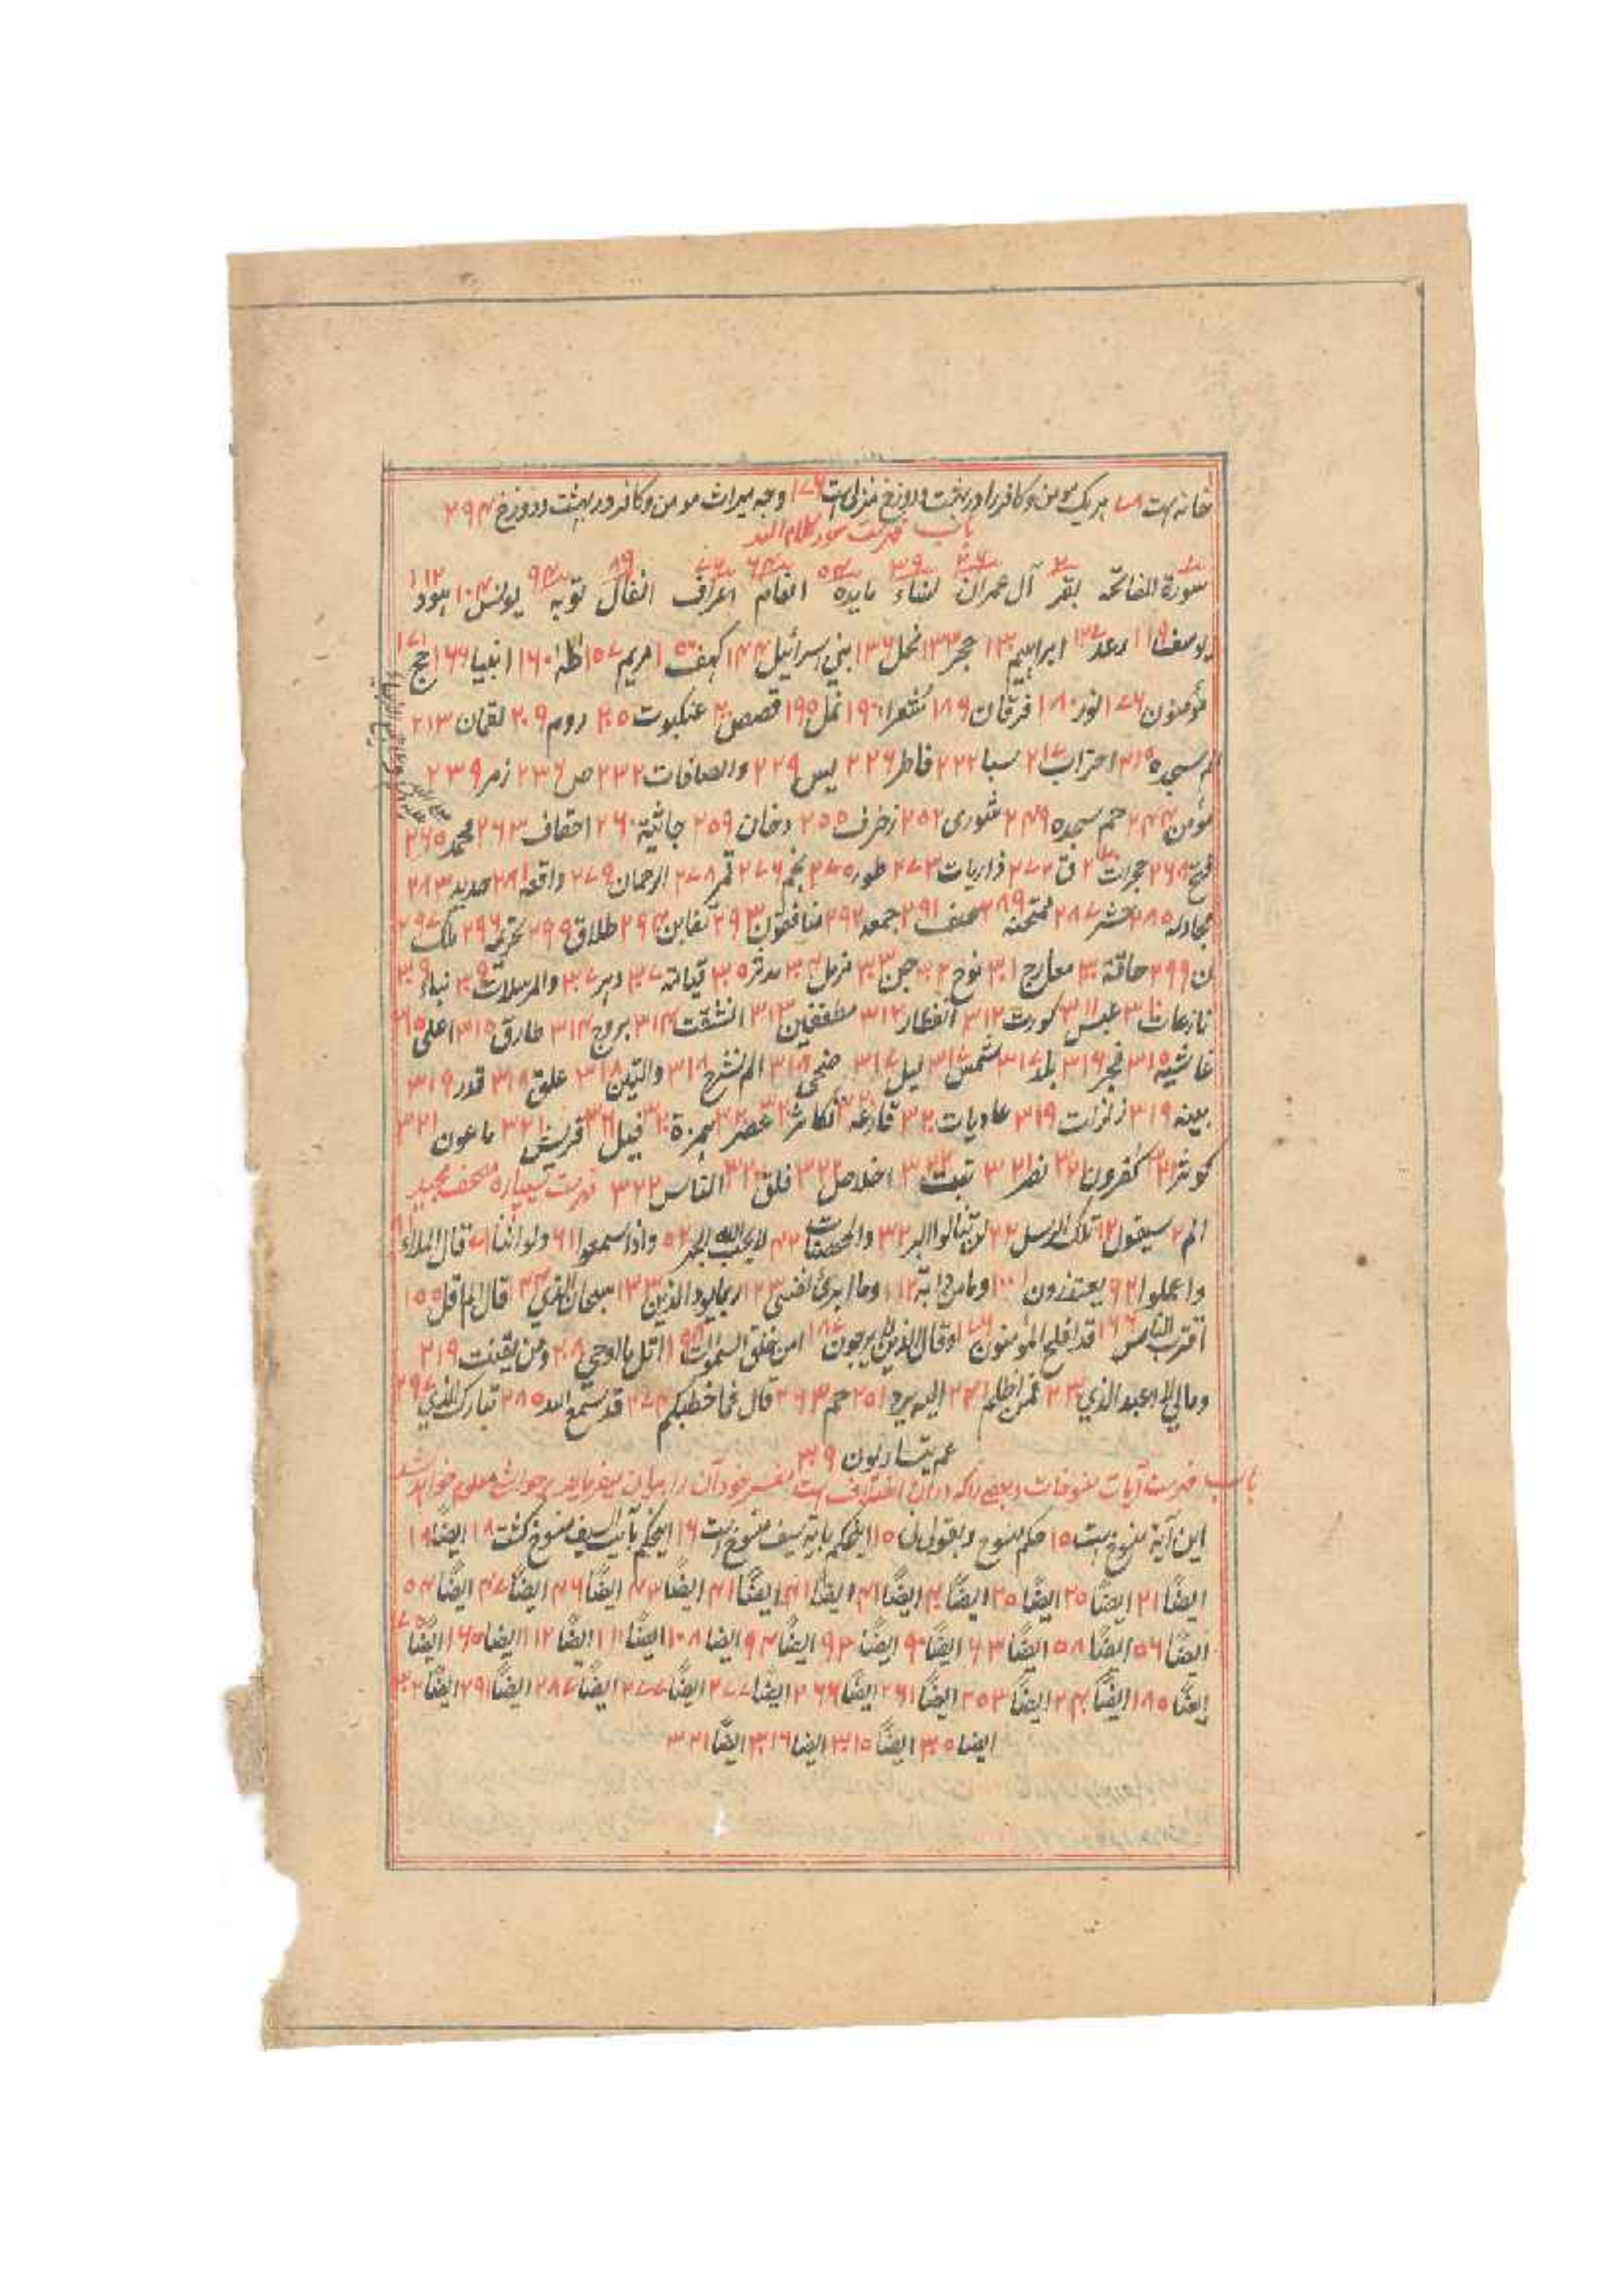 خانه است ۷۸ هر یک مومن و کافر را در بهشت و دوزخ منزل است ۱۷۶ وجه میراث مومن و کافر در بهشت و دوزخ ۲۹۴
باب فهرست سور کلام الله
سورة الفاتحه ۱ بقر ۲ آل عمران ۲۶ نساء ۳۹ مایده ۵۴ انعام ۶۴ اعراف ۷۶ انفال ۸۹ توبه ۹۴ یونس ۱۰۴ هود ۱۱۲
یوسف ۱۱۹ رعد ۱۲۷ ابراهیم ۱۳۰ حجر ۱۳۳ نحل ۱۳۶ بنی اسرائیل ۱۴۴ کهف ۱۵۰ مریم ۱۵۷ طه ۱۶۰ انبیا ۱۶۶ حج ۱۷۱
مؤمنون ۱۷۶ نور ۱۸۰ فرقان ۱۸۹ شعرا ۱۹۰ نمل ۱۹۵ قصص ۲۰۰ عنکبوت ۲۰۵ روم ۲۰۹ لقمان ۲۱۳
الم سجده ۲۱۵ احزاب ۲۱۷ سبا ۲۲۲ فاطر ۲۲۶ یس ۲۲۹ والصافات ۲۳۲ ص ۲۳۶ زمر ۲۳۹
مؤمن ۲۴۴ حم سجده ۲۴۹ شوری ۲۵۲ زخرف ۲۵۵ دخان ۲۵۹ جاثیة ۲۶۰ احقاف ۲۶۳ محمد ۲۶۵
فتح ۲۶۸ حجرات ۲۷۰ ق ۲۷۲ ذاریات ۲۷۳ طور ۲۷۵ نجم ۲۷۶ قمر ۲۷۸ الرحمان ۲۷۹ واقعه ۲۸۱ حدید ۲۸۳
مجادله ۲۸۵ حشر ۲۸۷ ممتحنه ۲۸۹ صف ۲۹۱ جمعه ۲۹۲ منافقون ۲۹۳ تغابن ۲۹۴ طلاق ۲۹۹ تحریم ۲۹۶ ملک ۲۹۷
ن ۲۹۹ حاقة ۳۰۰ معارج ۳۰۱ نوح ۳۰۲ جن ۳۰۳ مزمل ۳۰۴ مدثر ۳۰۵ قیامة ۳۰۷ دهر ۳۰۷ والمرسلات ۳۰۹ نباء ۳۰۹
نازعات ۳۱۰ عبس ۳۱۱ کورت ۳۱۲ انفطار ۳۱۲ مطففین ۳۱۳ انشقت ۳۱۴ بروج ۳۱۴ طارق ۳۱۵ اعلی ۳۱۵
غاشیه ۳۱۵ فجر ۳۱۶ بلد ۳۱۷ شمس ۳۱۷ لیل ۳۱۷ ضحی ۳۱۸ الم نشرح ۳۱۸ والتین ۳۱۸ علق ۳۱۸ قدر ۳۱۹
بینه ۳۱۹ زلزلت ۳۱۹ عادیات ۳۲۰ قارعه ۳۲۰ تکاثر ۳۲۰ عصر ۳۲۰ همزة ۳۲۰ فیل ۳۲۱ قریش ۳۲۱ ماعون ۳۲۱
کوثر ۳۲۱ کفرون ۳۲۱ نصر ۳۲۱ تبت ۳۲۲ اخلاص ۳۲۲ فلق ۳۲۲ الناس ۳۲۲ فهرست سیپاره مصحف مجید
الم ۲ سیقول ۱۲ تلک الرسل ۲۲ لن تنالوا البر ۳۲ والمحصنات ۴۲ لا یحب الله الجهر ۵۲ واذا سمعوا ۶۱ ولو اننا ۷۱ قال الملاء ۸۱
واعلموا ۹۲ یعتذرون ۱۰۰ وما من دابة ۱۱۲ وما ابرئ نفسی ۱۲۳ ربما یود الذین ۱۳۳ سبحان الذی ۱۴۴ قال الم اقل ۱۵۵
اقترب للناس ۱۶۶ قد افلح المؤمنون ۱۷۶ وقال الذین لا یرجون ۱۸۷ امن خلق السموات ۱۹۸ اتل ما اوحی ۲۰۸ ومن یقنت ۲۱۹
ومالی لا اعبد الذی ۲۳۰ فمن اظلم ۲۴۱ الیه یرد ۲۵۱ حم ۲۶۳ قال فما خطبکم ۲۷۴ قد سمع الله ۲۸۵ تبارک الذی ۲۹۷
عم یتساءلون ۳۰۹
باب فهرست آیات منسوخات و بعضی را که در آن اختلاف است مفسر خود آن را بیان میفرماید معلوم خواهد شد
این آیة منسوخ است ۱۵ حکم منسوخ وبقولی لی ۱۵ اینحکم بایة سیف منسوخ است ۱۶ اینحکم بآیت السیف منسوخ گشت ۱۸ ایضًا ۱۸
ایضًا ۲۱ ایضًا ۲۵ ایضًا ۲۵ ایضًا ۴۰ ایضًا ۴۱ ایضًا ۴۱ ایضًا ۴۱ ایضًا ۴۳ ایضًا ۴۶ ایضًا ۴۷ ایضًا ۵۴
ایضًا ۵۶ ایضًا ۵۸ ایضًا ۶۳ ایضًا ۹۰ ایضًا ۹۳ ایضًا ۹۴ ایضا ۱۰۸ ایضًا ۱۱۱ ایضًا ۱۱۲ ایضا ۱۶۵ ایضًا ۱۷۵
ایضًا ۱۸۵ ایضًا ۲۴۰ ایضًا ۲۵۳ ایضًا ۲۶۱ ایضًا ۲۶۶ ایضًا ۲۷۷ ایضًا ۲۷۷ ایضًا ۲۸۷ ایضًا ۲۹۱ ایضًا ۳۰۲
ایضا ۳۰۵ ایضًا ۳۱۵ ایضا ۳۱۶ ایضًا ۳۲۱